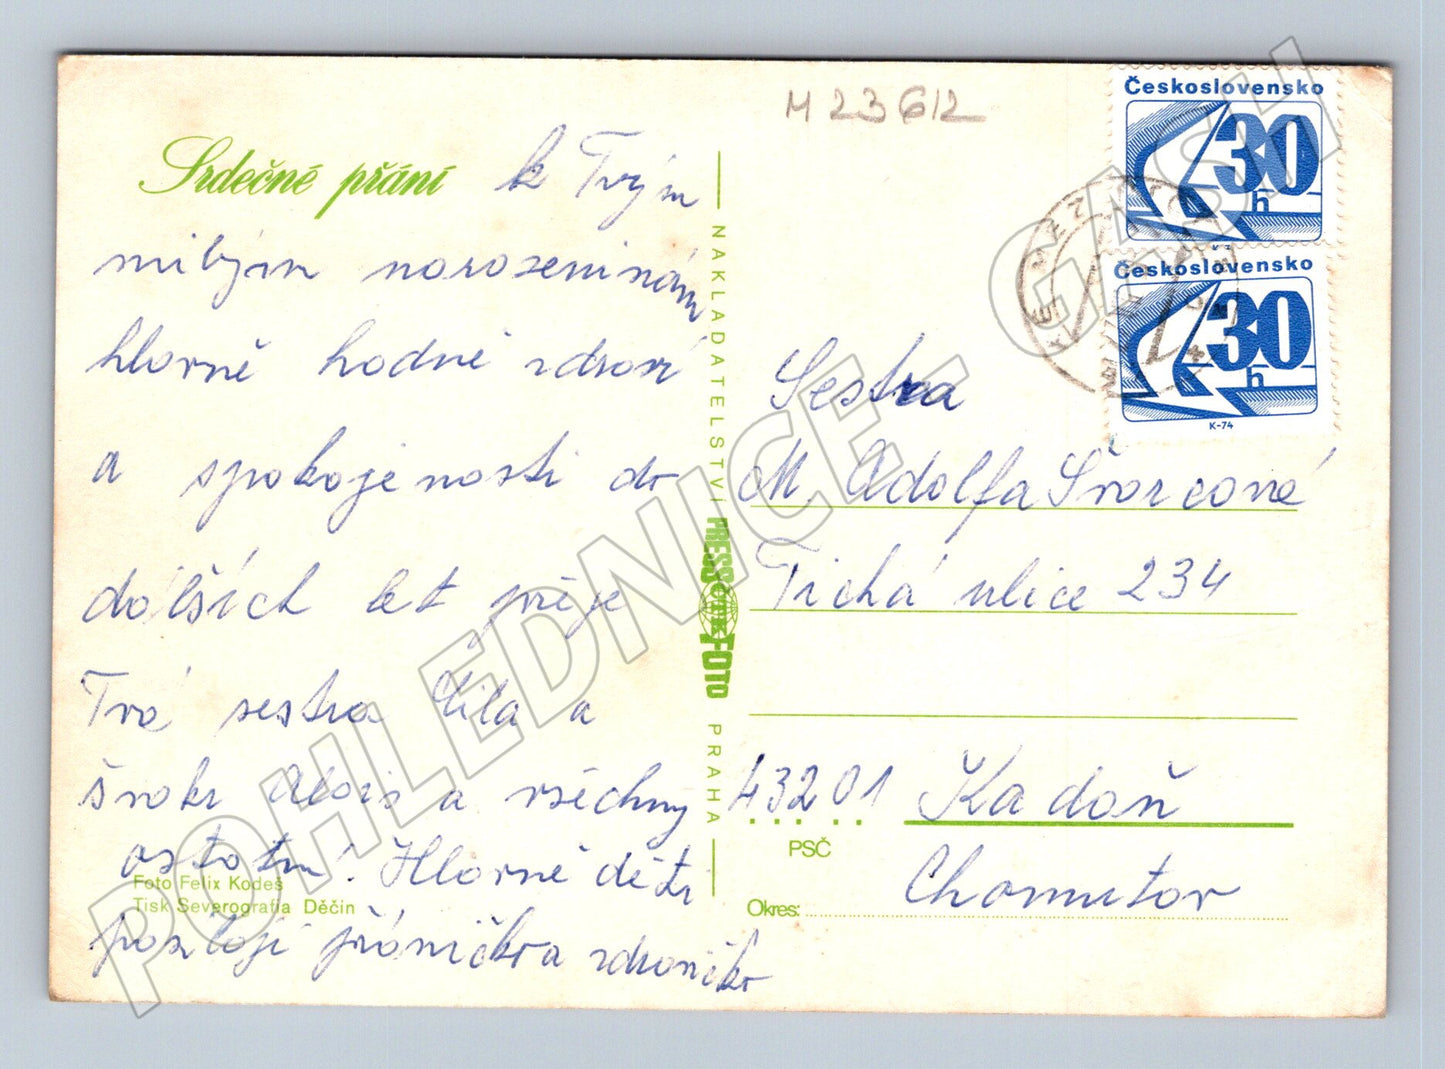 M 23612
Srdečné přání k Tvým
milým narozeninám
hlavně hodně zdraví
a spokojenosti do
dálších let přeje
Tvá sestra Míla a
švakr Alois a všechny
ostatni. Hlavně děti
posilají přáníčka zdravíčko
Foto Felix Kodeš
Tisk Severografia Děčín
NAKLADATELSTVÍ
PRESSFOTO
ČTK
PRAHA
Československo
30
h
K-74
Československo
30
h
K-74
Sestra
M. Adolfa Švarcová
Tichá ulice 234
43201 Kadaň
PSČ
Okres: Chomutov
POHLEDNICE - GASH